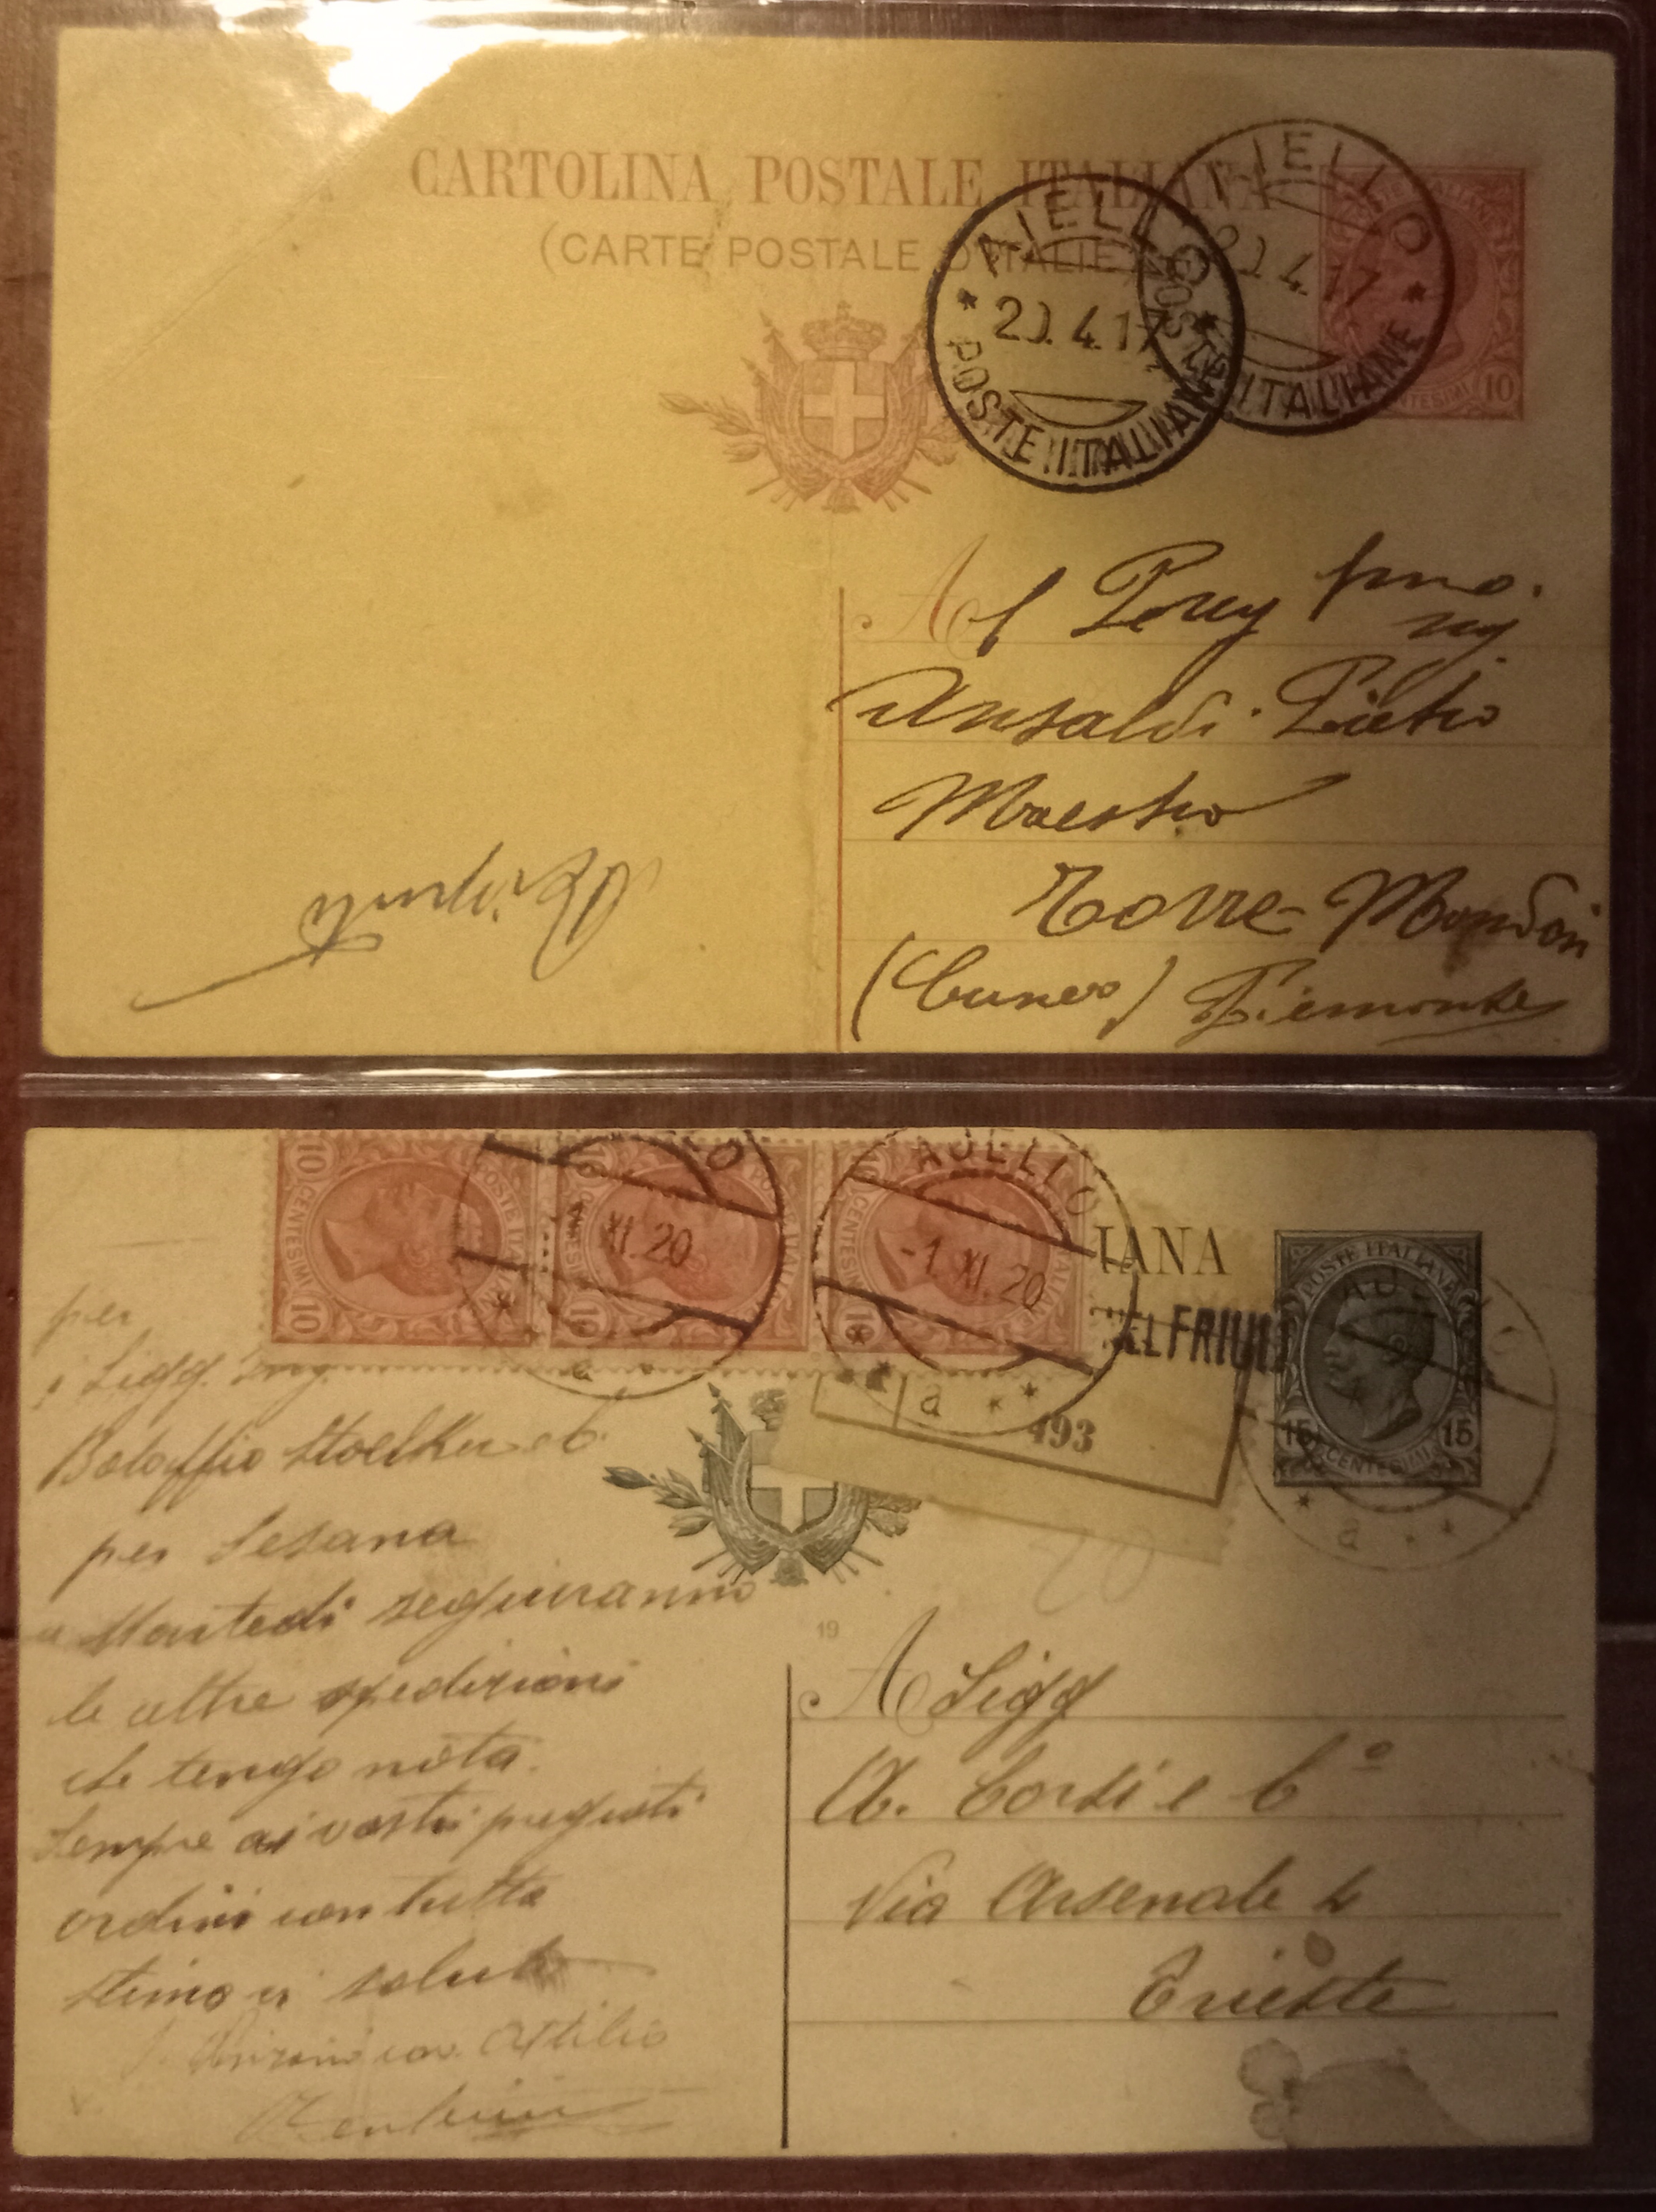 CARTOLINA POSTALE ITALIANA
(CARTE POSTALE D'ITALIE)
AIELLO
20.4.17
* POSTE ITALIANE *
AIELLO
20.4.17
POSTE ITALIANE *
POSTE ITALIANE
CENTESIMI 10
Al
Ansaldi Pietro
Maestro
Torre Mondovi
(Cuneo) Piemonte
10 CENTESIMI 10
POSTE ITALIANE
XI. 20
a
AJELLO
-1. XI. 20
a
IANA
DEL FRIULI
493
POSTE ITALIANE
15 CENTESIMI 15
AJELLO
a
per
i Sigg.
Bolaffio Stoelker e C.
per Sesana
Martedi seguiranno
le altre spedizioni
che tengo nota.
Sempre ai vostri pregiati
ordini con tutta
stima vi
Attilio
19
A Sigg
A. Corsi e Cº
Via Arsenale 4
Trieste